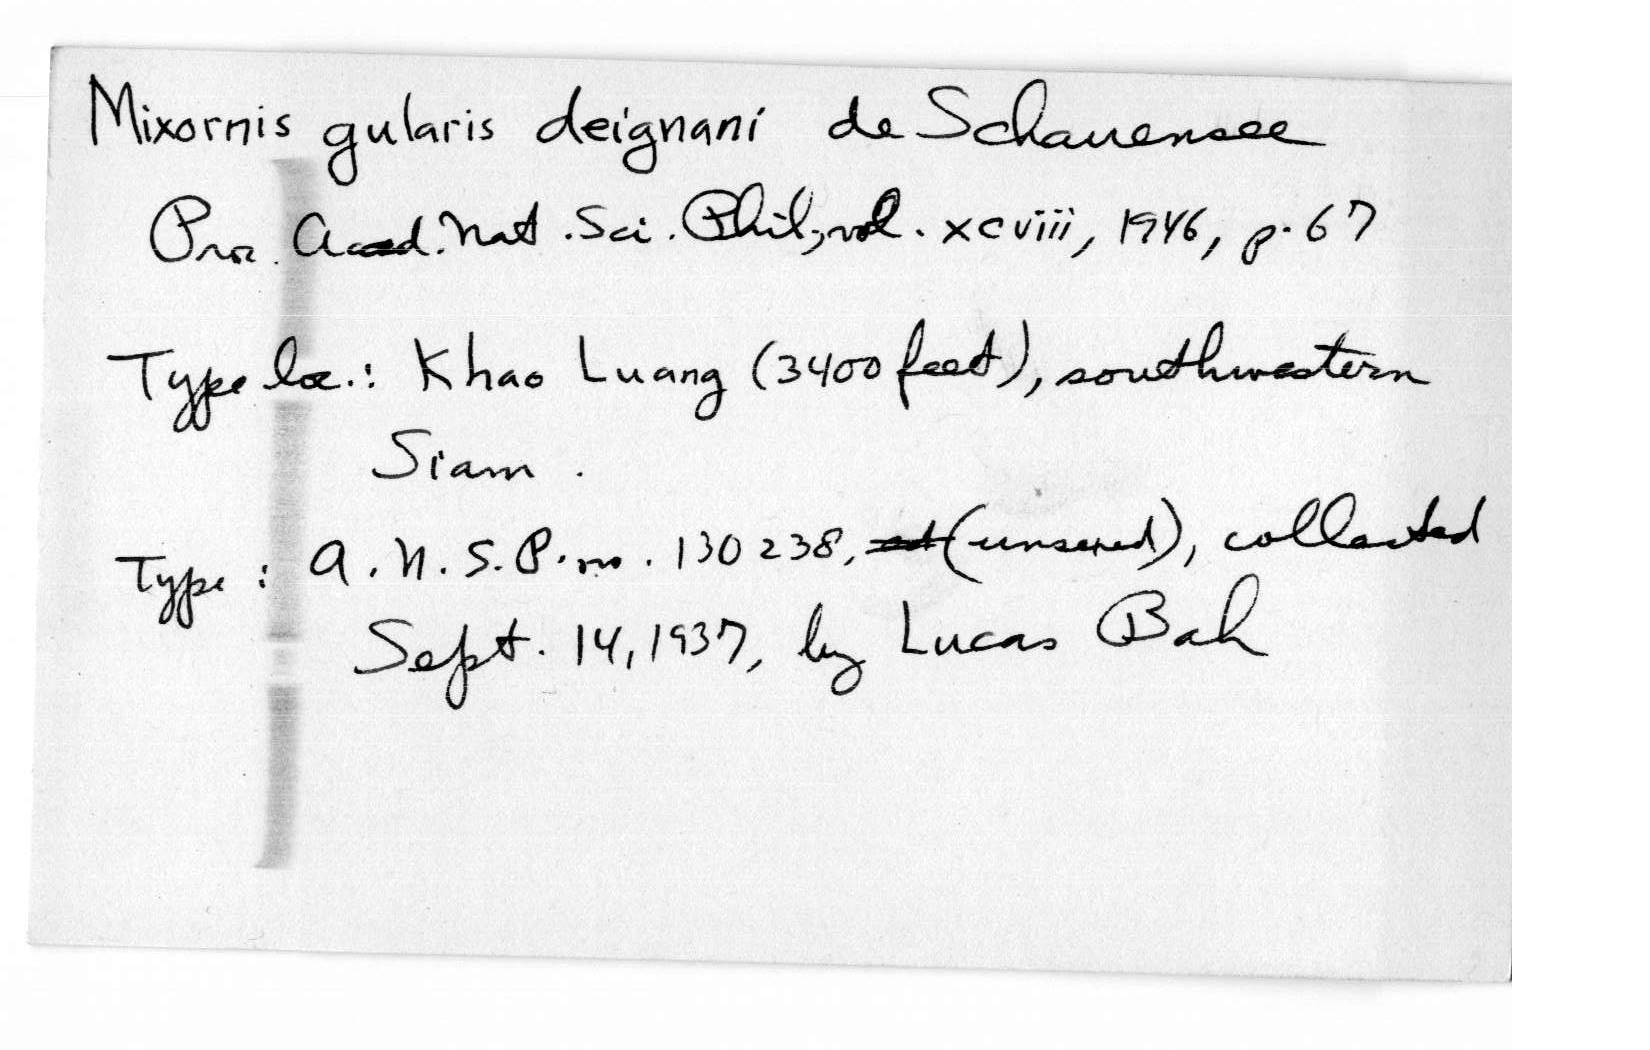 Mixornis gularis deignani de Schauensee
Proc. Acad. Nat. Sci. Phil., vol. xcviii, 1946, p. 67
Type loc.: Khao Luang (3400 feet), southwestern
Siam.
Type: A.N.S.P. no. 130238, (unsexed), collected
Sept. 14, 1937, by Lucas Bah